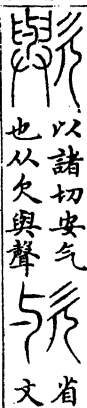 歟
以諸切安气
也从欠與聲
欤
省
文